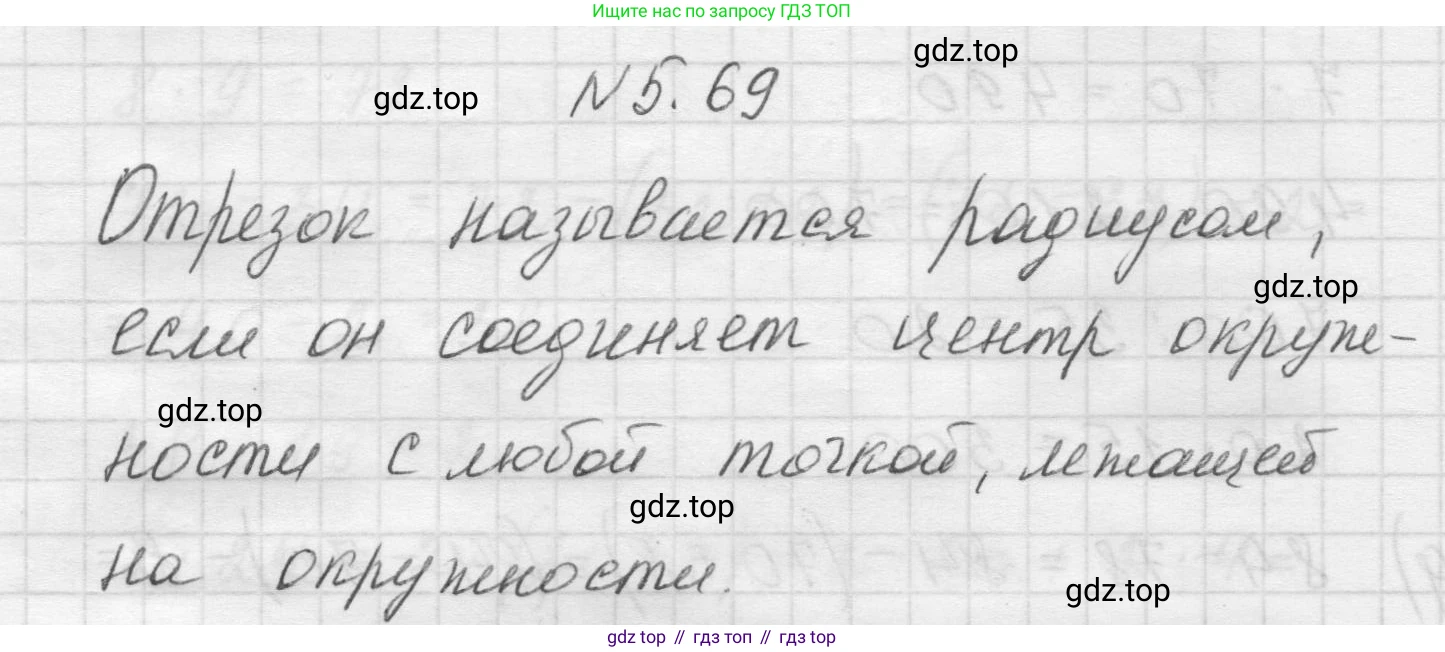 Ищите нас по запросу ГДЗ ТОП
gdz.top
gdz.top
N 5. 69
Отрезок называется радиусом,
gdz.top
если он соединяет центр окруж-
gdz.top
ности с любой точкой, лежащей
gdz.top
на окружности.
gdz.top
gdz top // гдз топ // gdz top